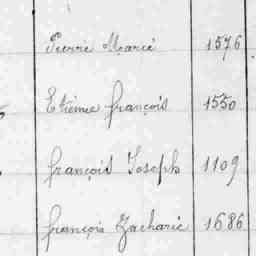 Pierre Marie 1576
Etienne françois 1550
françois Joseph 1109
françois Zacharie 1686